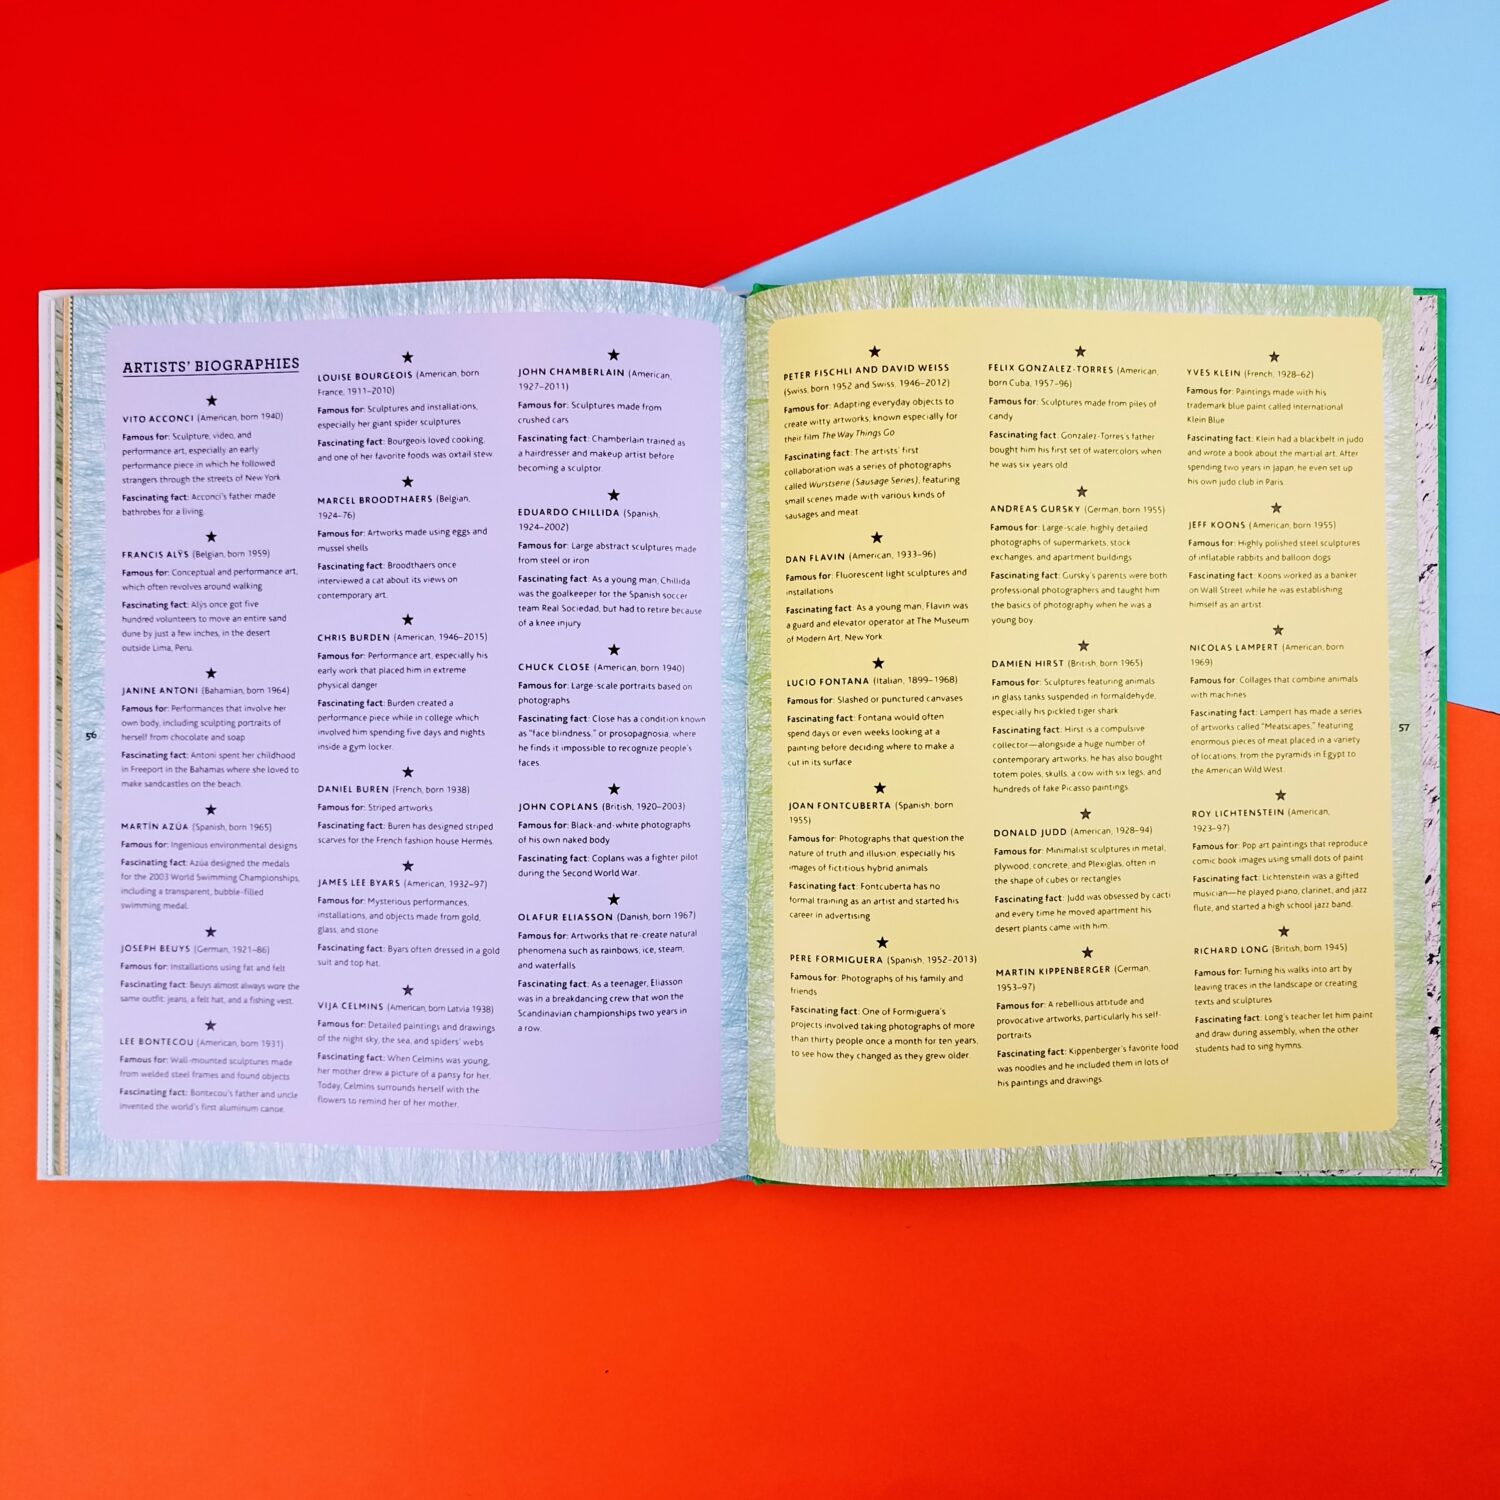 ARTISTS' BIOGRAPHIES
★
VITO ACCONCI (American, born 1940)
Famous for: Sculpture, video, and
performance art, especially an early
performance piece in which he followed
strangers through the streets of New York
Fascinating fact: Acconci's father made
bathrobes for a living.
★
FRANCIS ALŸS (Belgian, born 1959)
Famous for: Conceptual and performance art,
which often revolves around walking
Fascinating fact: Alÿs once got five
hundred volunteers to move an entire sand
dune by just a few inches, in the desert
outside Lima, Peru.
★
JANINE ANTONI (Bahamian, born 1964)
Famous for: Performances that involve her
own body, including sculpting portraits of
herself from chocolate and soap
Fascinating fact: Antoni spent her childhood
in Freeport in the Bahamas where she loved to
make sandcastles on the beach.
★
MARTÍN AZÚA (Spanish, born 1965)
Famous for: Ingenious environmental designs
Fascinating fact: Azúa designed the medals
for the 2003 World Swimming Championships,
including a transparent, bubble-filled
swimming medal.
★
JOSEPH BEUYS (German, 1921–86)
Famous for: Installations using fat and felt
Fascinating fact: Beuys almost always wore the
same outfit: jeans, a felt hat, and a fishing vest.
★
LEE BONTECOU (American, born 1931)
Famous for: Wall-mounted sculptures made
from welded steel frames and found objects
Fascinating fact: Bontecou's father and uncle
invented the world's first aluminum canoe.
★
LOUISE BOURGEOIS (American, born
France, 1911–2010)
Famous for: Sculptures and installations,
especially her giant spider sculptures
Fascinating fact: Bourgeois loved cooking,
and one of her favorite foods was oxtail stew.
★
MARCEL BROODTHAERS (Belgian,
1924–76)
Famous for: Artworks made using eggs and
mussel shells
Fascinating fact: Broodthaers once
interviewed a cat about its views on
contemporary art.
★
CHRIS BURDEN (American, 1946–2015)
Famous for: Performance art, especially his
early work that placed him in extreme
physical danger
Fascinating fact: Burden created a
performance piece while in college which
involved him spending five days and nights
inside a gym locker.
★
DANIEL BUREN (French, born 1938)
Famous for: Striped artworks
Fascinating fact: Buren has designed striped
scarves for the French fashion house Hermès.
★
JAMES LEE BYARS (American, 1932–97)
Famous for: Mysterious performances,
installations, and objects made from gold,
glass, and stone
Fascinating fact: Byars often dressed in a gold
suit and top hat.
★
VIJA CELMINS (American, born Latvia 1938)
Famous for: Detailed paintings and drawings
of the night sky, the sea, and spiders' webs
Fascinating fact: When Celmins was young,
her mother drew a picture of a pansy for her.
Today, Celmins surrounds herself with the
flowers to remind her of her mother.
★
JOHN CHAMBERLAIN (American,
1927–2011)
Famous for: Sculptures made from
crushed cars
Fascinating fact: Chamberlain trained as
a hairdresser and makeup artist before
becoming a sculptor.
★
EDUARDO CHILLIDA (Spanish,
1924–2002)
Famous for: Large abstract sculptures made
from steel or iron
Fascinating fact: As a young man, Chillida
was the goalkeeper for the Spanish soccer
team Real Sociedad, but had to retire because
of a knee injury.
★
CHUCK CLOSE (American, born 1940)
Famous for: Large-scale portraits based on
photographs
Fascinating fact: Close has a condition known
as "face blindness," or prosopagnosia, where
he finds it impossible to recognize people's
faces.
★
JOHN COPLANS (British, 1920–2003)
Famous for: Black-and-white photographs
of his own naked body
Fascinating fact: Coplans was a fighter pilot
during the Second World War.
★
OLAFUR ELIASSON (Danish, born 1967)
Famous for: Artworks that re-create natural
phenomena such as rainbows, ice, steam,
and waterfalls
Fascinating fact: As a teenager, Eliasson
was in a breakdancing crew that won the
Scandinavian championships two years in
a row.
56
★
PETER FISCHLI AND DAVID WEISS
(Swiss, born 1952 and Swiss, 1946–2012)
Famous for: Adapting everyday objects to
create witty artworks, known especially for
their film The Way Things Go
Fascinating fact: The artists' first
collaboration was a series of photographs
called Wurstserie (Sausage Series), featuring
small scenes made with various kinds of
sausages and meat.
★
DAN FLAVIN (American, 1933–96)
Famous for: Fluorescent light sculptures and
installations
Fascinating fact: As a young man, Flavin was
a guard and elevator operator at The Museum
of Modern Art, New York.
★
LUCIO FONTANA (Italian, 1899–1968)
Famous for: Slashed or punctured canvases
Fascinating fact: Fontana would often
spend days or even weeks looking at a
painting before deciding where to make a
cut in its surface.
★
JOAN FONTCUBERTA (Spanish, born
1955)
Famous for: Photographs that question the
nature of truth and illusion, especially his
images of fictitious hybrid animals
Fascinating fact: Fontcuberta has no
formal training as an artist and started his
career in advertising.
★
PERE FORMIGUERA (Spanish, 1952–2013)
Famous for: Photographs of his family and
friends
Fascinating fact: One of Formiguera's
projects involved taking photographs of more
than thirty people once a month for ten years,
to see how they changed as they grew older.
★
FELIX GONZALEZ-TORRES (American,
born Cuba, 1957–96)
Famous for: Sculptures made from piles of
candy
Fascinating fact: Gonzalez-Torres's father
bought him his first set of watercolors when
he was six years old.
★
ANDREAS GURSKY (German, born 1955)
Famous for: Large-scale, highly detailed
photographs of supermarkets, stock
exchanges, and apartment buildings
Fascinating fact: Gursky's parents were both
professional photographers and taught him
the basics of photography when he was a
young boy.
★
DAMIEN HIRST (British, born 1965)
Famous for: Sculptures featuring animals
in glass tanks suspended in formaldehyde,
especially his pickled tiger shark
Fascinating fact: Hirst is a compulsive
collector—alongside a huge number of
contemporary artworks, he has also bought
totem poles, skulls, a cow with six legs, and
hundreds of fake Picasso paintings.
★
DONALD JUDD (American, 1928–94)
Famous for: Minimalist sculptures in metal,
plywood, concrete, and Plexiglas, often in
the shape of cubes or rectangles
Fascinating fact: Judd was obsessed by cacti
and every time he moved apartment his
desert plants came with him.
★
MARTIN KIPPENBERGER (German,
1953–97)
Famous for: A rebellious attitude and
provocative artworks, particularly his self-
portraits
Fascinating fact: Kippenberger's favorite food
was noodles and he included them in lots of
his paintings and drawings.
★
YVES KLEIN (French, 1928–62)
Famous for: Paintings made with his
trademark blue paint called International
Klein Blue
Fascinating fact: Klein had a blackbelt in judo
and wrote a book about the martial art. After
spending two years in Japan, he even set up
his own judo club in Paris.
★
JEFF KOONS (American, born 1955)
Famous for: Highly polished steel sculptures
of inflatable rabbits and balloon dogs
Fascinating fact: Koons worked as a banker
on Wall Street while he was establishing
himself as an artist.
★
NICOLAS LAMPERT (American, born
1969)
Famous for: Collages that combine animals
with machines
Fascinating fact: Lampert has made a series
of artworks called "Meatscapes," featuring
enormous pieces of meat placed in a variety
of locations, from the pyramids in Egypt to
the American Wild West.
★
ROY LICHTENSTEIN (American,
1923–97)
Famous for: Pop art paintings that reproduce
comic book images using small dots of paint
Fascinating fact: Lichtenstein was a gifted
musician—he played piano, clarinet, and jazz
flute, and started a high school jazz band.
★
RICHARD LONG (British, born 1945)
Famous for: Turning his walks into art by
leaving traces in the landscape or creating
texts and sculptures
Fascinating fact: Long's teacher let him paint
and draw during assembly, when the other
students had to sing hymns.
57